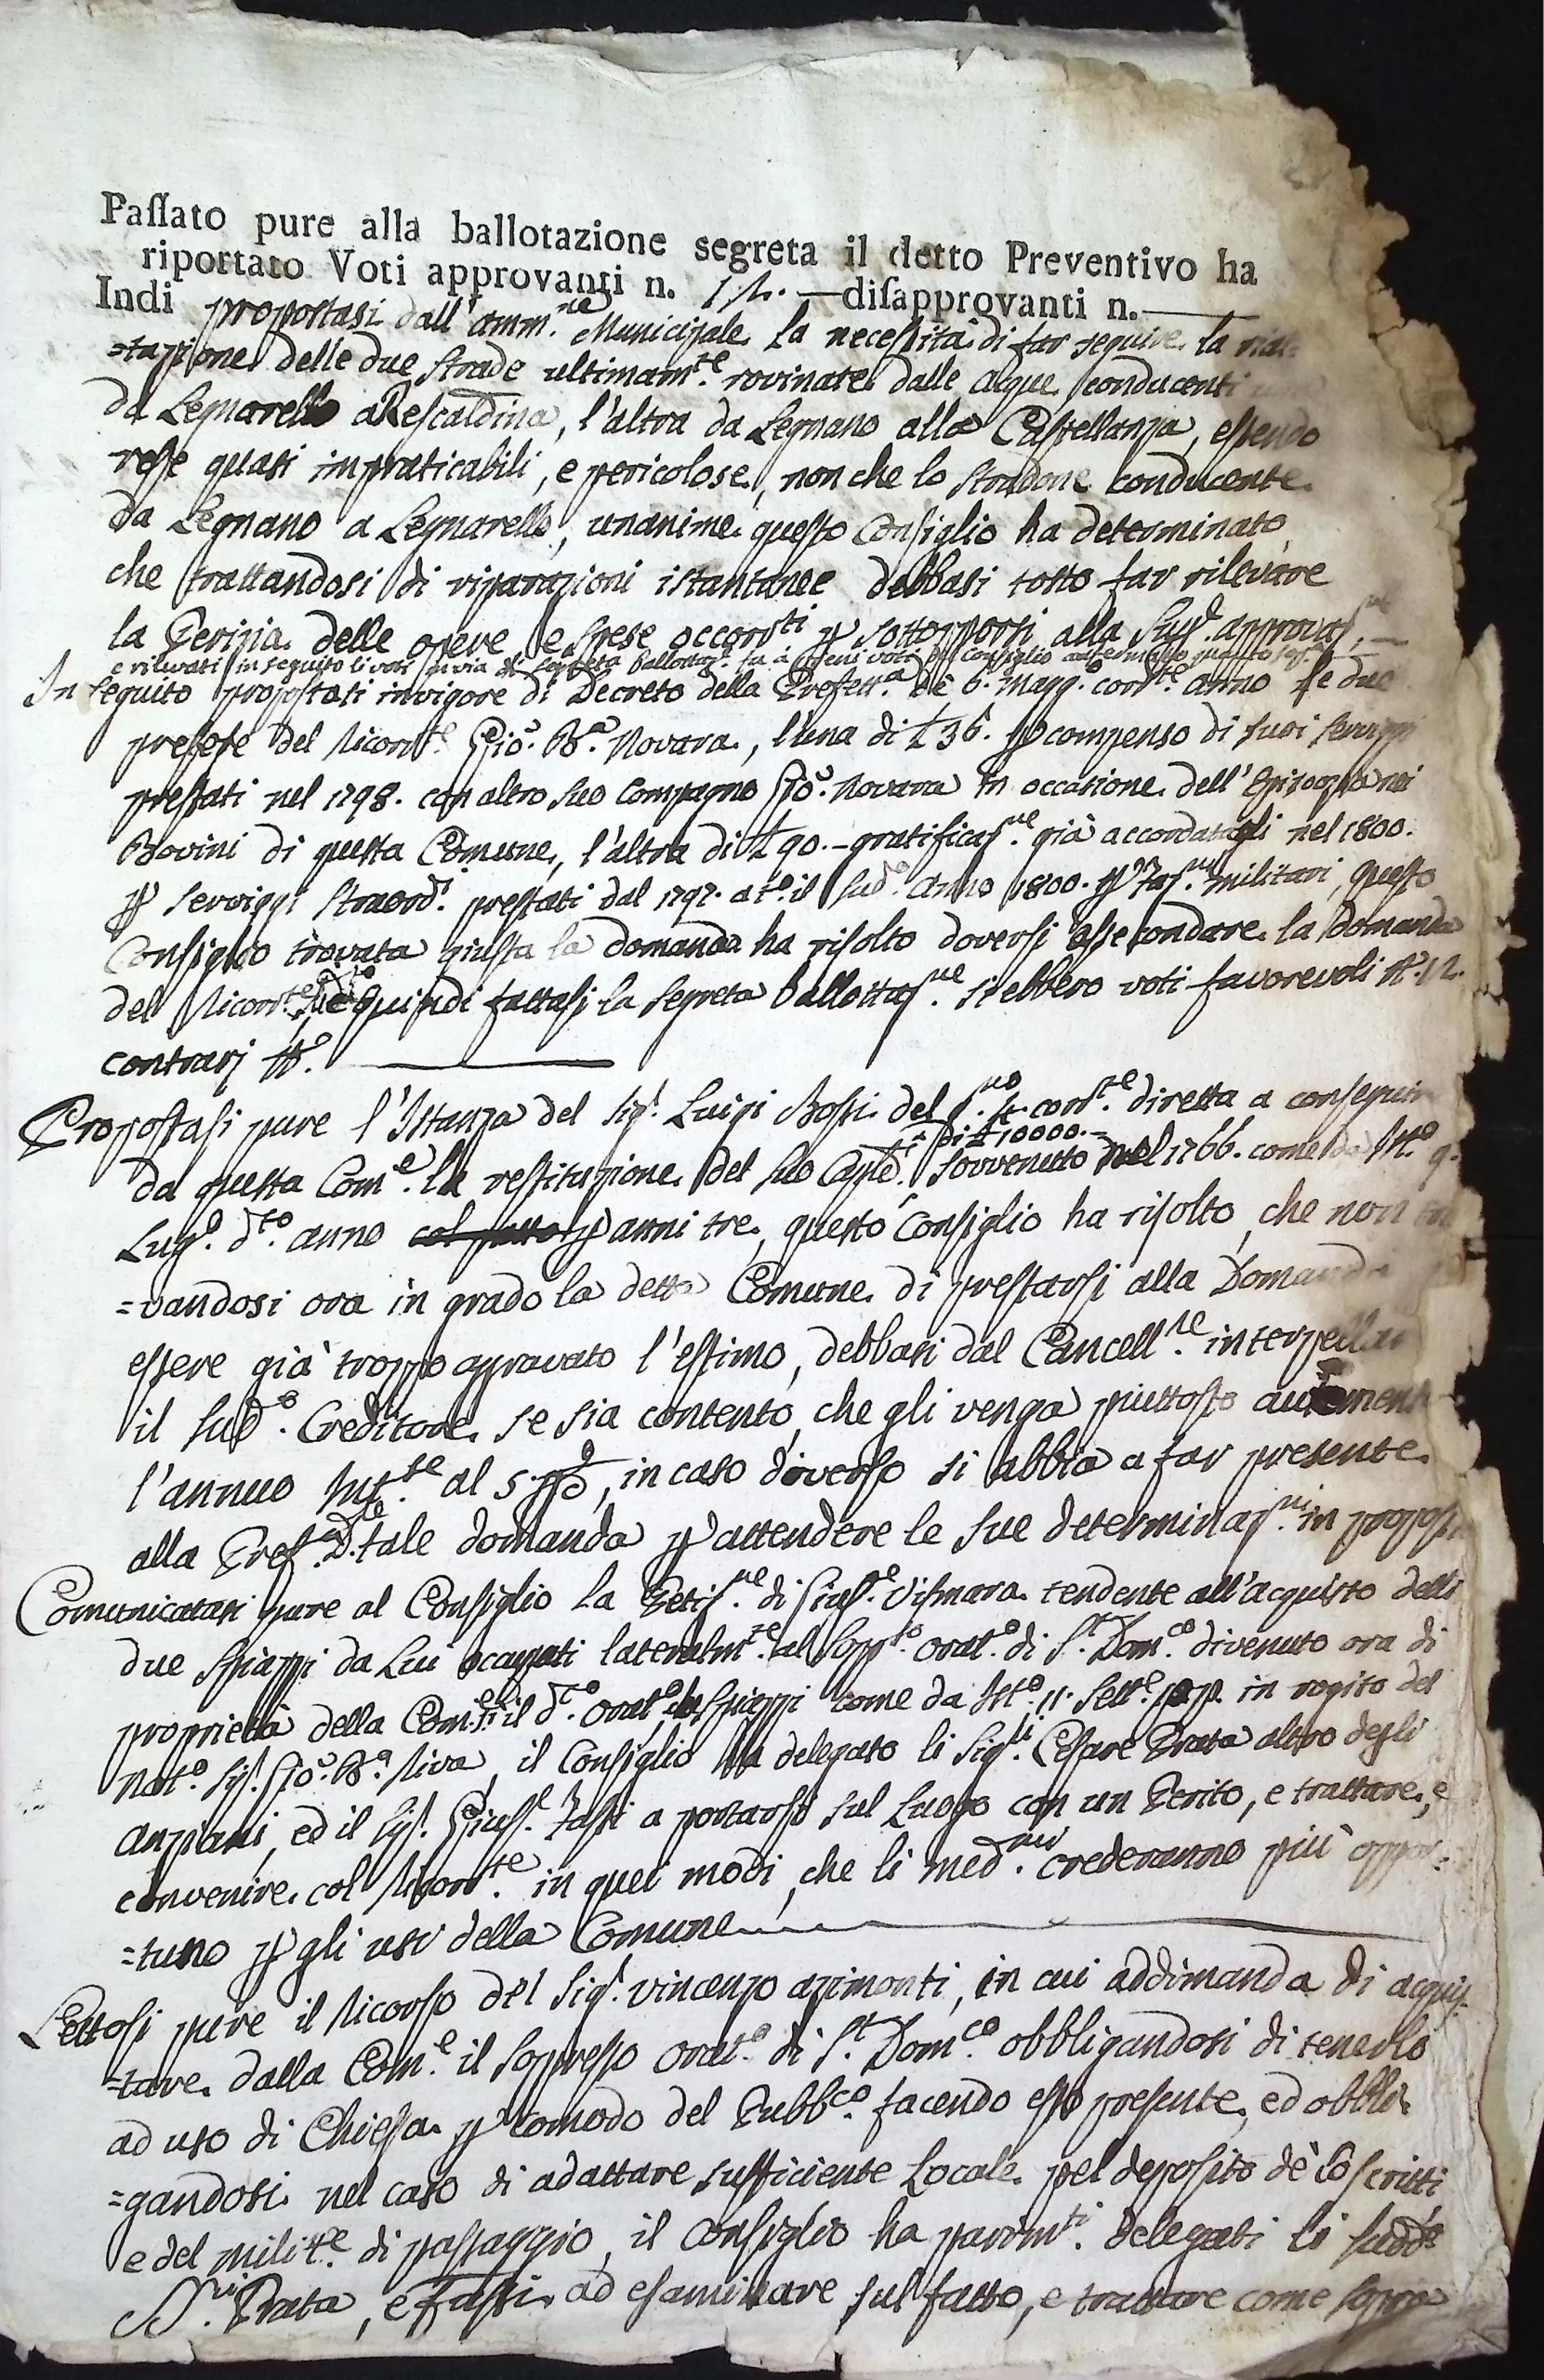 Paſſato pure alla ballotazione segreta il detto Preventivo ha
riportato Voti approvanti n. 12. — diſapprovanti n. —
Indi propostasi dall'amm.ne Municipale la necessità di far seguire la
=tazione delle due Strade ultimam.te rovinate dalle acque conducenti
da Legnarello a Rescaldina, l'altra da Legnano alla Castellanza, essendo
rese quasi impraticabili, e pericolose, non che lo Stradone conducente
da Legnano a Legnarello, unanime questo Consiglio ha determinato,
che trattandosi di riparazioni istantanee debbasi tosto far rilevare
la Perizia delle opere e spese occorr.ti p sottoporsi alla Sup. approvaz.ne —
e rilevati in seguito li voti in via di segreta ballottaz. fu a pieni voti
In seguito propostasi in vigore di Decreto della Prefett.a de 6. Magg.o corr.te anno le due
pretese del Ricorr.te Gio. B.a Novara, l'una di £ 36. p compenso di suoi servizzi
prestati nel 1798. con altro suo Compagno Gio. Novara in occasione dell'Epizoozia nei
Bovini di questa Comune, l'altra di £ 90. - gratificaz.ne già accordatagli nel 1800.
p serviggi straord.i prestati dal 1797. a t.o il sud.o anno 1800. p militari, questo
Consiglio trovata giusta la domanda ha risolto doversi assecondare la Domanda
del Ricorr.te Quindi fattasi la segreta ballottaz.ne si ebbero voti favorevoli N.o 12.
contrarj N.o —
Propostasi pure l'Istanza del Sig.r Luigi Bossi del corr.te diretta a conseguire
di £ 10000. -
da questa Com.e la restituzione del suo Cap.le sovvenuto nel 1766. come da Ist.o 9.
Lug.o d.to anno p anni tre, questo Consiglio ha risolto, che non
=vandosi ora in grado la detta Comune di prestarsi alla Domanda
essere già troppo agravato l'estimo, debbasi dal Cancell.re interpellare
il sud.o Creditore se sia contento, che gli venga piuttosto
l'annuo Int.se al 5. p %, in caso diverso si abbia a far presente
alla Pref.a tale domanda p attendere le sue determinaz.ni in proposito
Comunicatasi pure al Consiglio la Petiz.ne di Gius.e Vismara tendente all'acquisto delli
due Spiazzi da Lui occupati lateralm.te al Sopp.o orat.o di S.t Dom.co divenuto ora di
proprietà della Com.e il d.to orat.o Spiazzi come da Ist.o 11. Sett.e p.p. in rogito del
Not.o Sig.r Gio. B.a Riva, il Consiglio ha delegato li Sig.ri Cesare Prata altro degli
anziani, ed il Sig.r Gius.e Fassi a portarsi sul Luogo con un Perito, e trattare, e
convenire col Ricorr.te in quei modi, che li med.mi crederanno più oppor=
=tuno p gli usi della Comune —
Lettosi pure il Ricorso del Sig.r Vincenzo azimonti, in cui addimanda di acquis=
=tare dalla Com.e il soppresso orat.o di S.t Dom.co obbligandosi di tenerlo
ad uso di Chiesa p comodo del Pubb.co facendo esso presente, ed obbli=
=gandosi nel caso di adattare sufficiente Locale pel deposito de' Coscritti
e del milit.e di passaggio, il Consiglio ha parim.ti delegati li sudd.i
SS.ri Prata, e Fassi ad esaminare sul fatto, e trattare come sopra